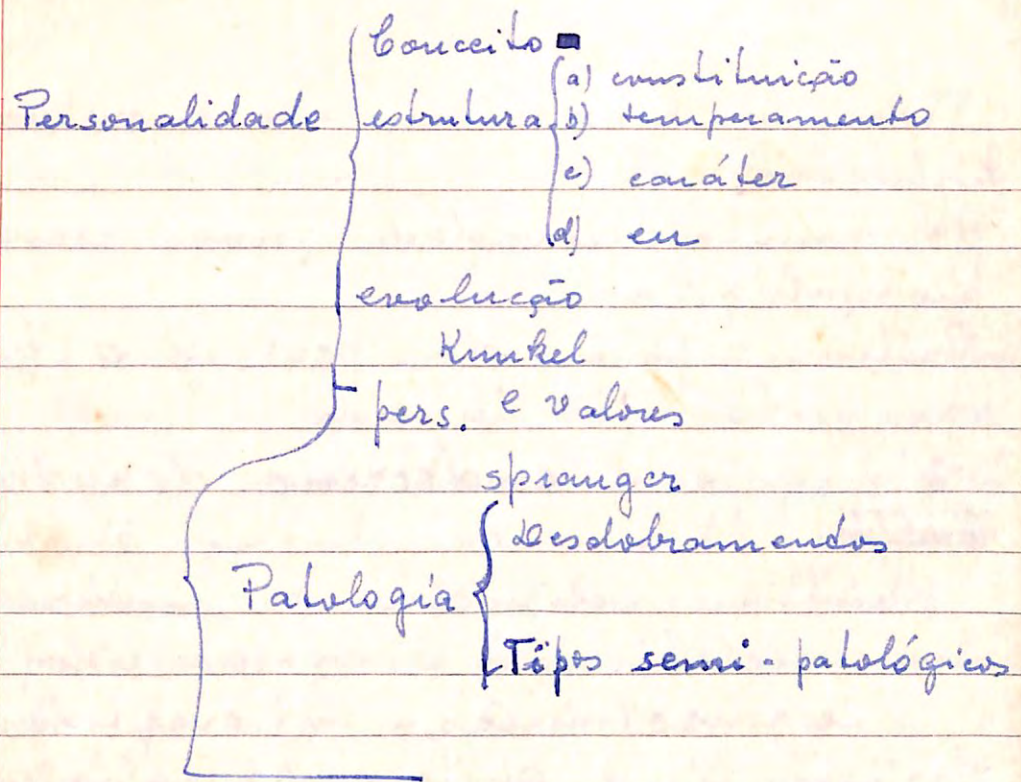 Conceito
Personalidade estrutura a) constituição
b) temperamento
c) caráter
d) eu
evolução
Kunkel
pers. e valores
spranger
Patologia Desdobramentos
Tipos semi-patológicos